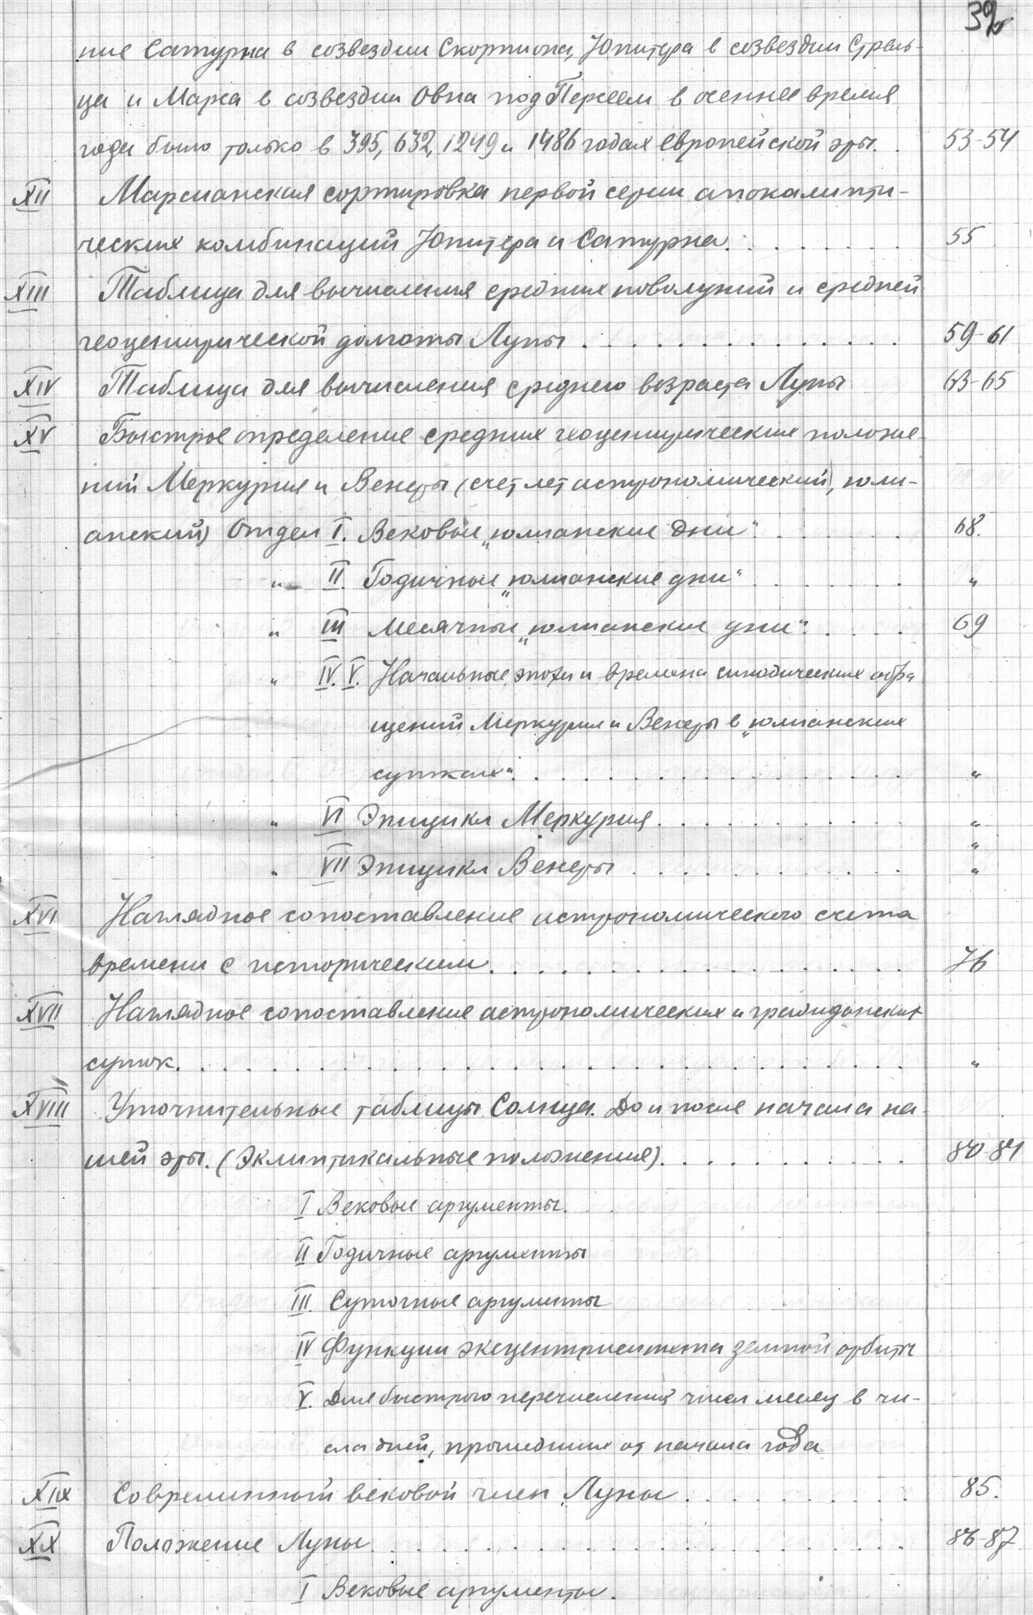 39
ние Сатурна в созвездии Скорпиона, Юпитера в созвездии Стрель-
ца и Марса в созвездии Овна под Персеем в осеннее время
года было только в 395, 632, 1249 и 1486 годах европейской эры. . 53-54
XII Марсианская сортировка первой серии апокалипти-
ческих комбинаций Юпитера и Сатурна. . . . . . . 55
XIII Таблица для вычисления средних новолуний и средней
геоцентрической долготы Луны . . . . . . . . . . . . . 59-61
XIV Таблица для вычисления среднего возраста Луны 63-65
XV Быстрое определение средних геоцентрических положе
ний Меркурия и Венеры (счет лет астрономический, юли-
анский) Отдел I. Вековые „юлианские дни“ . . . . . 68.
„ II Годичные „юлианские дни“ . . . . . „
„ III Месячные „юлианские дни“. . . . . 69
„ IV. V. Начальные эпохи и времена синодических обра
щений Меркурия и Венеры в „юлианских
сутках“. . . . . . . . . . . . . . „
„ VI Эпицикл Меркурия. . . . . . . . . „
„
„ VII Эпицикл Венеры . . . . . . . . . . „
XVI Наглядное сопоставление астрономического счета
времени с историческим. . . . . . . . . . . . . . . 76
XVII Наглядное сопоставление астрономических и гражданских
суток. . . . . . . . . . . . . . . . . . . . . . . . „
XVIII Уточнительные таблицы Солнца. До и после начала на-
шей эры. (Эклиптикальные положения). . . . . . . . . 80-81
I Вековые аргументы.
II Годичные аргументы
III. Суточные аргументы
IV Функции эксцентриситета земной орбиты
V. Для быстрого перечисления чисел месяц в чи-
сла дней, прошедших от начала года
XIX Современный вековой член Луны . . . . . . . 85.
XX Положение Луны. . . . . . . . . . . . . . . . . 86-87
I Вековые аргументы.